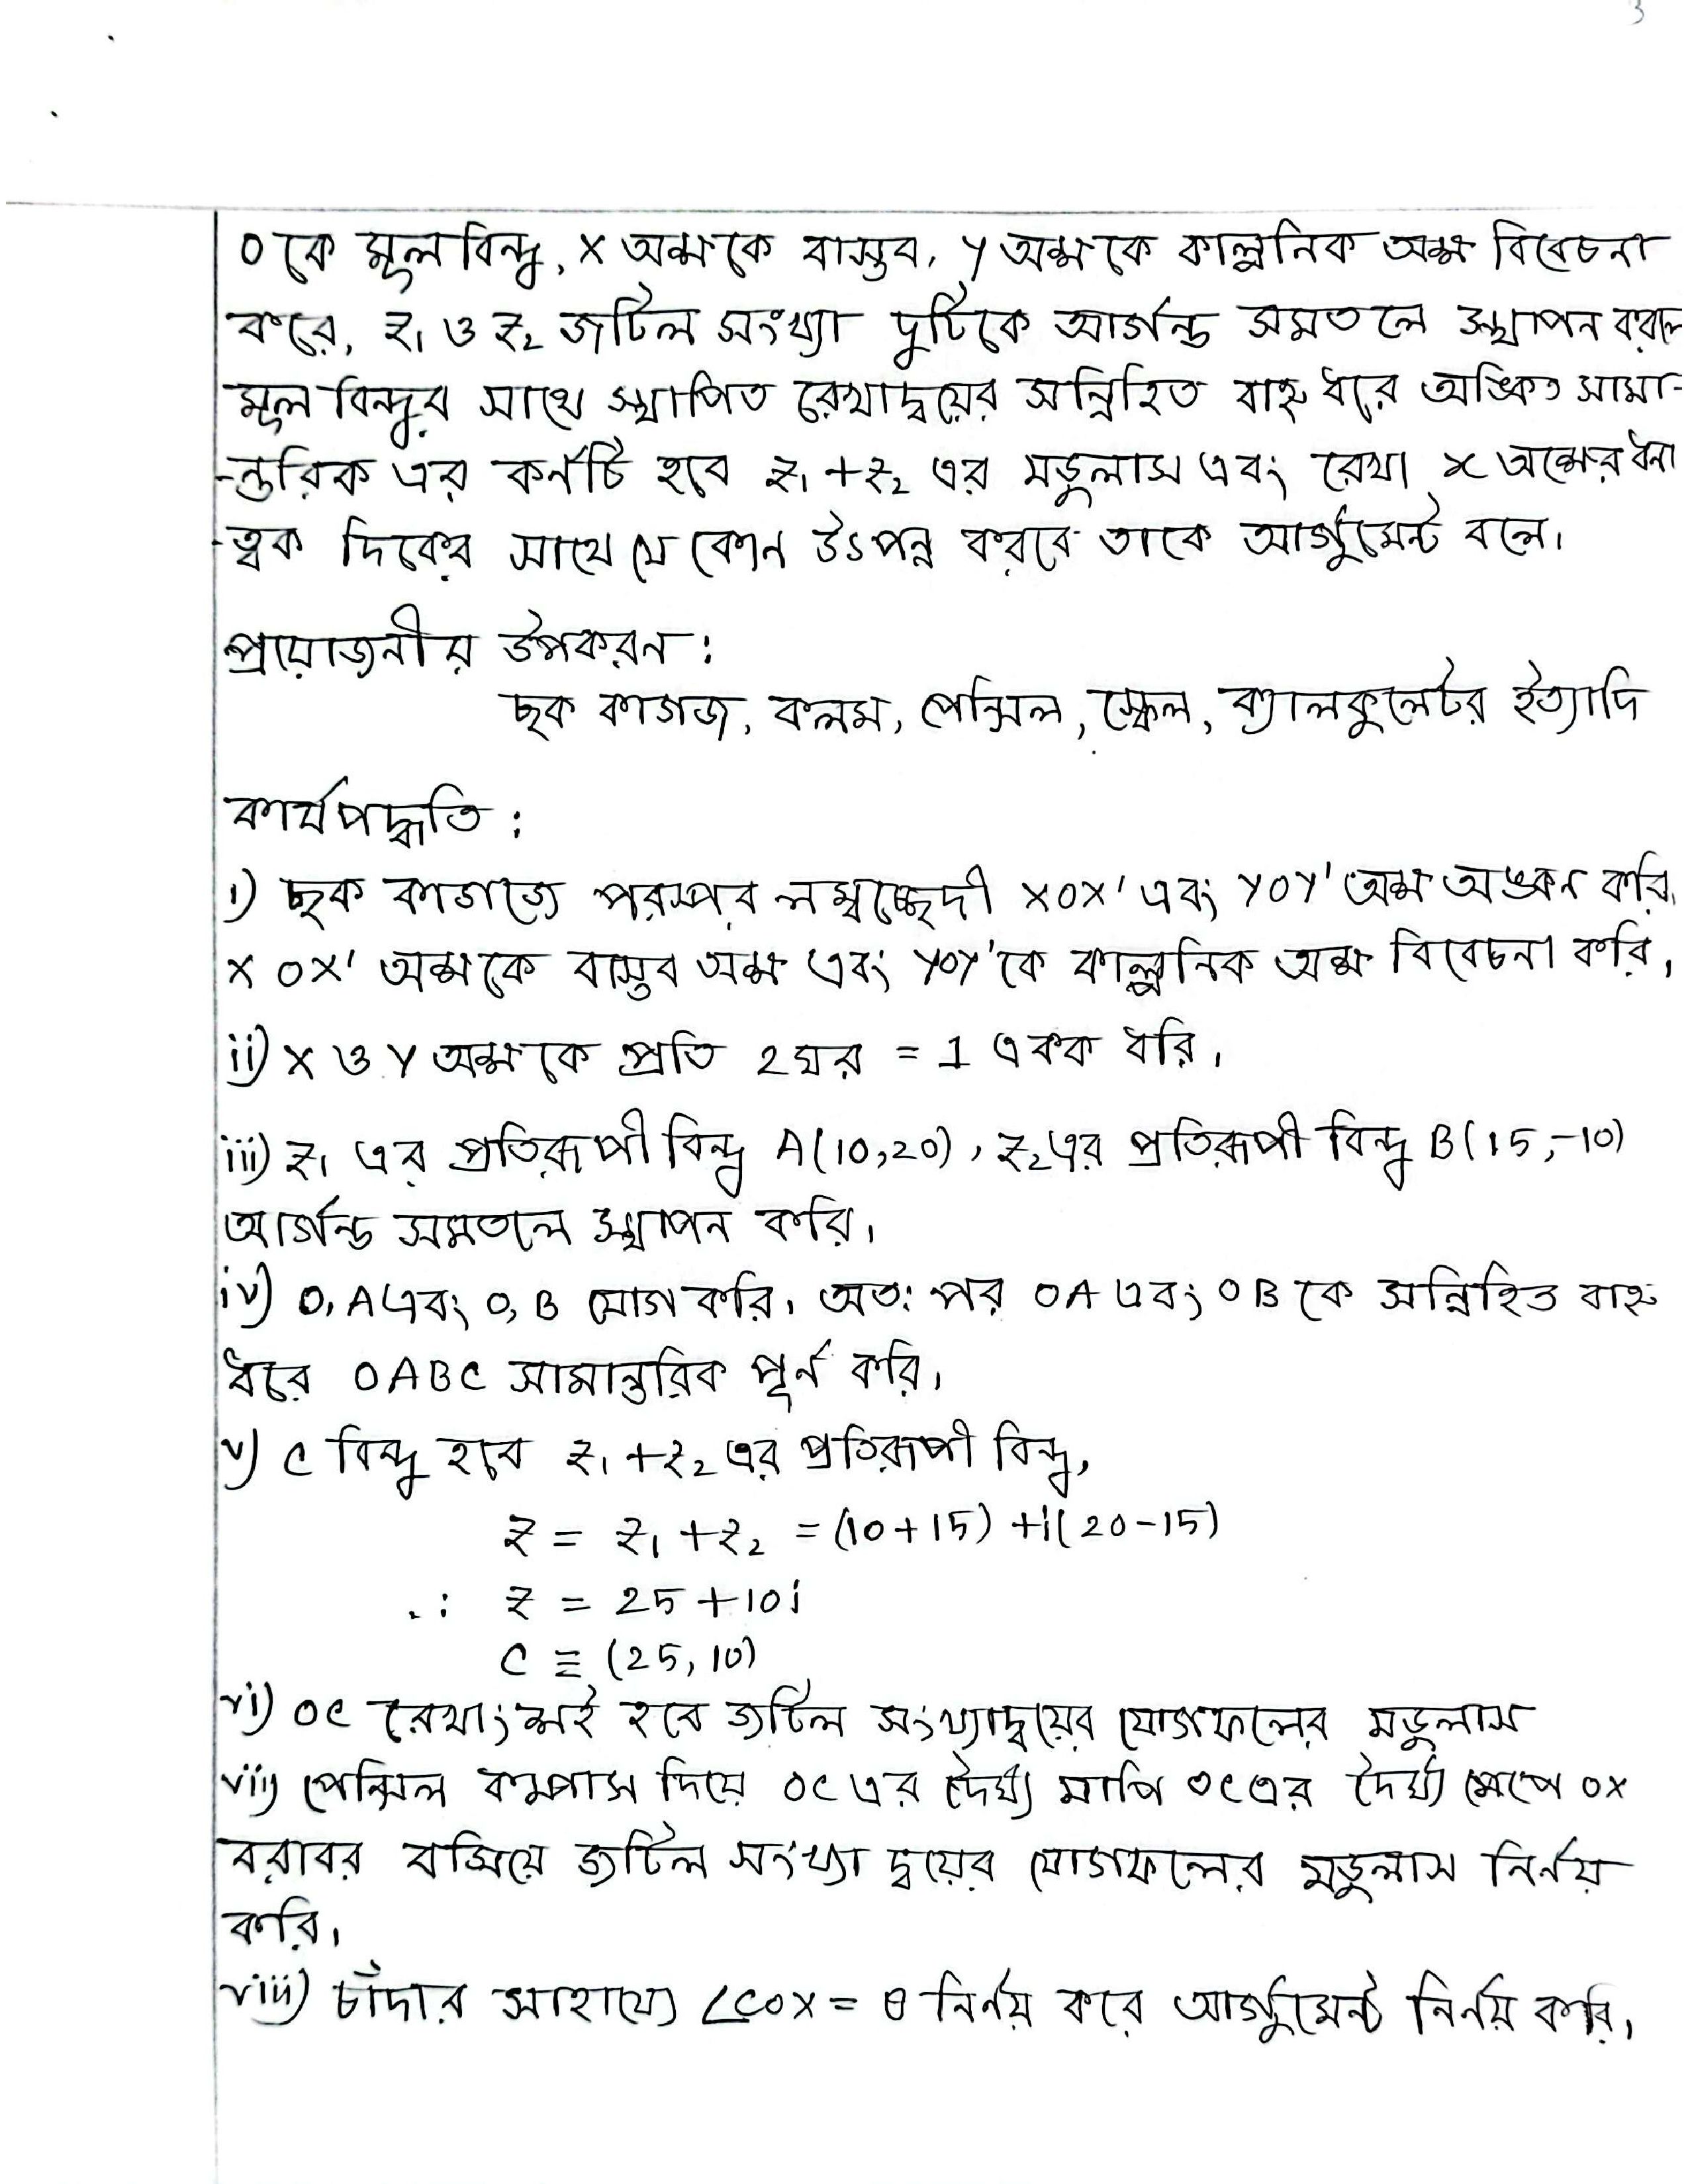 3
O কে মূলবিন্দু, X অক্ষকে বাস্তব, Y অক্ষকে কাল্পনিক অক্ষ বিবেচনা
করে, z₁ ও z₂ জটিল সংখ্যা দুটিকে আর্গন্ড সমতলে স্থাপন করলে
মূলবিন্দুর সাথে স্থাপিত রেখাদ্বয়ের সন্নিহিত বাহু ধরে অঙ্কিত সামা-
-ন্তরিক এর কর্নটি হবে z₁+z₂ এর মডুলাস এবং রেখা x অক্ষের ধনা
-ত্বক দিকের সাথে যে কোন উৎপন্ন করবে তাকে আর্গুমেন্ট বলে।
প্রয়োজনীয় উপকরন :
ছক কাগজ, কলম, পেন্সিল, স্কেল, ক্যালকুলেটর ইত্যাদি
কার্যপদ্ধতি :
i) ছক কাগজে পরস্পর লম্বচ্ছেদী XOX' এবং YOY' অক্ষ অঙ্কন করি,
X OX' অক্ষকে বাস্তব অক্ষ এবং YOY'কে কাল্পনিক অক্ষ বিবেচনা করি,
ii) X ও Y অক্ষকে প্রতি 2 ঘর = 1 একক ধরি,
iii) z₁ এর প্রতিরূপী বিন্দু A(10,20), z₂ এর প্রতিরূপী বিন্দু B(15,-10)
আর্গন্ড সমতলে স্থাপন করি,
iv) O,A এবং O,B যোগ করি, অত: পর OA এবং OB কে সন্নিহিত বাহু
ধরে OABC সামান্তরিক পূর্ন করি,
v) C বিন্দু হবে z₁+z₂ এর প্রতিরূপী বিন্দু,
z = z₁ + z₂ = (10+15) +i(20-15)
∴ z = 25+10i
C ≡ (25,10)
vi) OC রেখাংশই হবে জটিল সংখ্যাদ্বয়ের যোগফলের মডুলাস
vii) পেন্সিল কম্পাস দিয়ে OC এর দৈর্ঘ্য মাপি OC এর দৈর্ঘ্য মেপে OX
বরাবর বসিয়ে জটিল সংখ্যা দ্বয়ের যোগফলের মডুলাস নির্নয়
করি,
viii) চাঁদার সাহায্যে ∠COX = θ নির্নয় করে আর্গুমেন্ট নির্নয় করি,